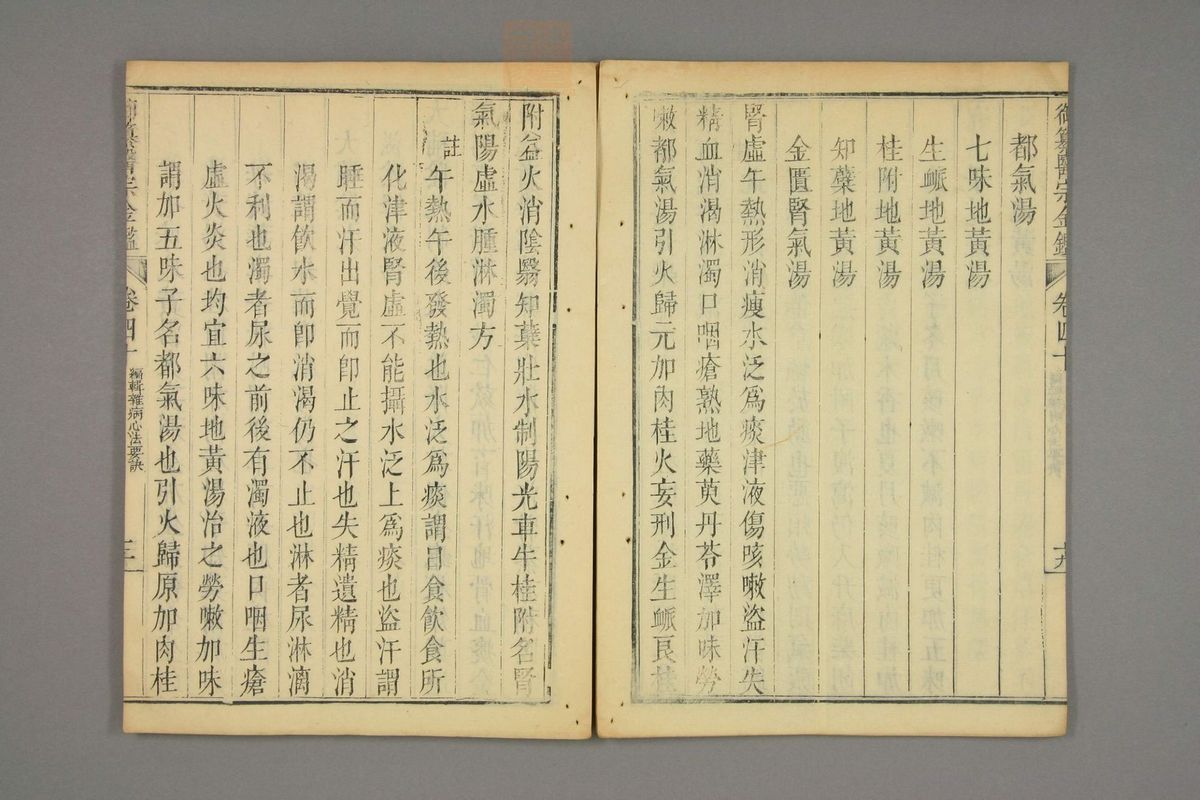 御纂醫宗金鑑 卷四十 十九
都氣湯
七味地黃湯
生䘑地黃湯
桂附地黃湯
知蘗地黃湯
金匱腎氣湯
腎虛午熱形消瘦水泛爲痰津液傷咳嗽盜汗失
精血消渴淋濁口咽瘡熟地藥萸丹苓澤加味勞
嗽都氣湯引火歸元加肉桂火妄刑金生䘑良桂
附益火消陰翳知蘗壯水制陽光車牛桂附名腎
氣陽虛水腫淋濁方
註午熱午後發熱也水泛爲痰謂日食飲食所
化津液腎虛不能攝水泛上爲痰也盜汗謂
睡而汗出覺而卽止之汗也失精遺精也消
渴謂飲水而卽消渴仍不止也淋者尿淋漓
不利也濁者尿之前後有濁液也口咽生瘡
虛火炎也均宜六味地黃湯治之勞嗽加味
謂加五味子名都氣湯也引火歸原加肉桂
御纂醫宗金鑑 卷四十 編輯雜病心法要訣